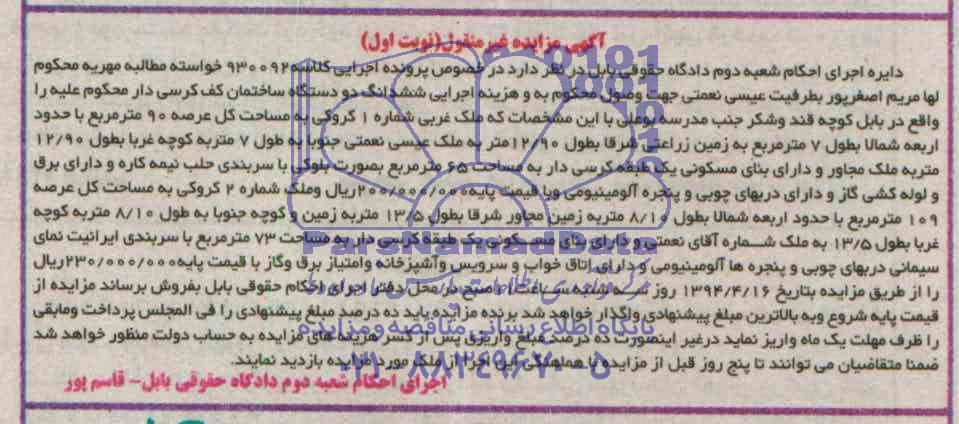 آگهی مزایده غیرمنقول(نوبت اول)
دایره اجرای احکام شعبه دوم دادگاه حقوقی بابل در نظر دارد در خصوص پرونده اجرایی کلاسه ۹۳۰۰۹۲ خواسته مطالبه مهریه محکوم
لها مریم اصغرپور بطرفیت عیسی نعمتی جهت وصول محکوم به و هزینه اجرایی ششدانگ دو دستگاه ساختمان کف کرسی دار محکوم علیه را
واقع در بابل کوچه قند وشکر جنب مدرسه بوعلی با این مشخصات که ملک غربی شماره ۱ کروکی به مساحت کل عرصه ۹۰ مترمربع با حدود
اربعه شمالا بطول ۷ مترمربع به زمین زراعتی شرقا بطول ۱۲/۹۰متر به ملک عیسی نعمتی جنوبا به طول ۷ متربه کوچه غربا بطول ۱۲/۹۰
متربه ملک مجاور و دارای بنای مسکونی یک طبقه کرسی دار به مساحت ۶۵ مترمربع بصورت بلوکی با سربندی حلب نیمه کاره و دارای برق
و لوله کشی گاز و دارای دربهای چوبی و پنجره آلومینیومی وبا قیمت پایه۲۰۰/۰۰۰/۰۰۰ریال وملک شماره ۲ کروکی به مساحت کل عرصه
۱۰۹ مترمربع با حدود اربعه شمالا بطول ۸/۱۰ متربه زمین مجاور شرقا بطول ۱۳/۵ متربه زمین و کوچه جنوبا به طول ۸/۱۰ متربه کوچه
غربا بطول ۱۳/۵ به ملک شماره آقای نعمتی و دارای بنای مسکونی یک طبقه کرسی دار به مساحت ۷۳ مترمربع با سربندی ایرانیت نمای
سیمانی دربهای چوبی و پنجره ها آلومینیومی و دارای اتاق خواب و سرویس وآشپزخانه وامتیاز برق وگاز با قیمت پایه۲۳۰/۰۰۰/۰۰۰ریال
را از طریق مزایده بتاریخ ۱۳۹۴/۴/۱۶ روز سه شنبه ساعت صبح در محل دفتر اجرای احکام حقوقی بابل بفروش برساند مزایده از
قیمت پایه شروع وبه بالاترین مبلغ پیشنهادی واگذار خواهد شد برنده مزایده باید ده درصد مبلغ پیشنهادی را فی المجلس پرداخت ومابقی
را ظرف مهلت یک ماه واریز نماید درغیر اینصورت ده درصد مبلغ واریزی پس از کسر هزینه های مزایده به حساب دولت منظور خواهد شد
ضمنا متقاضیان می توانند تا پنج روز قبل از مزایده با هماهنگی این اجرا از ملک مورد مزایده بازدید نمایند.
اجرای احکام شعبه دوم دادگاه حقوقی بابل- قاسم پور
پایگاه اطلاع رسانی مناقصه ومزایده
۰۲۱-۸۸۳۴۹۶۷۰-۵